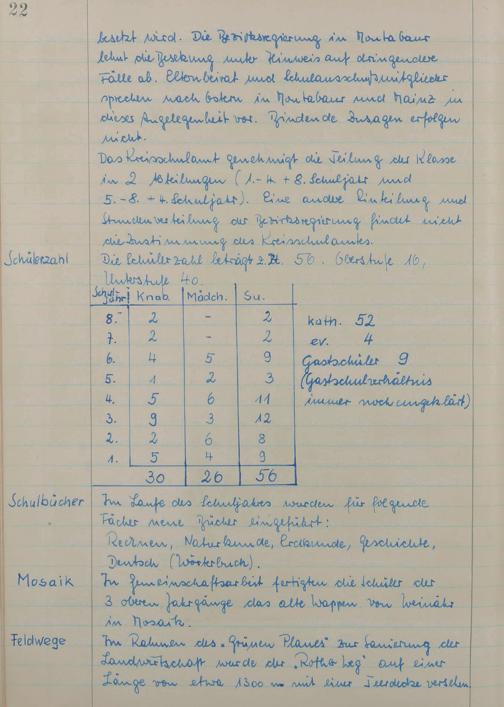 22
besetzt wird. Die Bezirksregierung in Montabaur
lehnt die Besetzung unter Hinweis auf dringendere
Fälle ab. Elternbeirat und Schulausschußmitglieder
sprechen nach Ostern in Montabaur und Mainz in
dieser Angelegenheit vor. Bindende Zusagen erfolgen
nicht.
Das Kreisschulamt genehmigt die Teilung der Klasse
in 2 Abteilungen (1.-4. + 8. Schuljahr und
5.-8. + 4. Schuljahr). Eine andere Einteilung und
Stundenverteilung der Bezirksregierung findet nicht
die Zustimmung des Kreisschulamtes.
Schülerzahl Die Schülerzahl beträgt z. Zt. 56. Oberstufe 16,
Unterstufe 40.
Schuljahr Knab. Mädch. Su.
8. 2 - 2 kath. 52
7. 2 - 2 ev. 4
6. 4 5 9 Gastschüler 9
5. 1 2 3 (Gastschulverhältnis
4. 5 6 11 immer noch ungeklärt)
3. 9 3 12
2. 2 6 8
1. 5 4 9
30 26 56
Schulbücher Im Laufe des Schuljahres wurden für folgende
Fächer neue Bücher eingeführt:
Rechnen, Naturkunde, Erdkunde, Geschichte,
Deutsch (Wörterbuch).
Mosaik In Gemeinschaftsarbeit fertigten die Schüler der
3 oberen Jahrgänge das alte Wappen von Weinähr
in Mosaik.
Feldwege Im Rahmen des "Grünen Planes" zur Sanierung der
Landwirtschaft wurde der "Rothe Weg" auf einer
Länge von etwa 1300 m mit einer Teerdecke versehen.